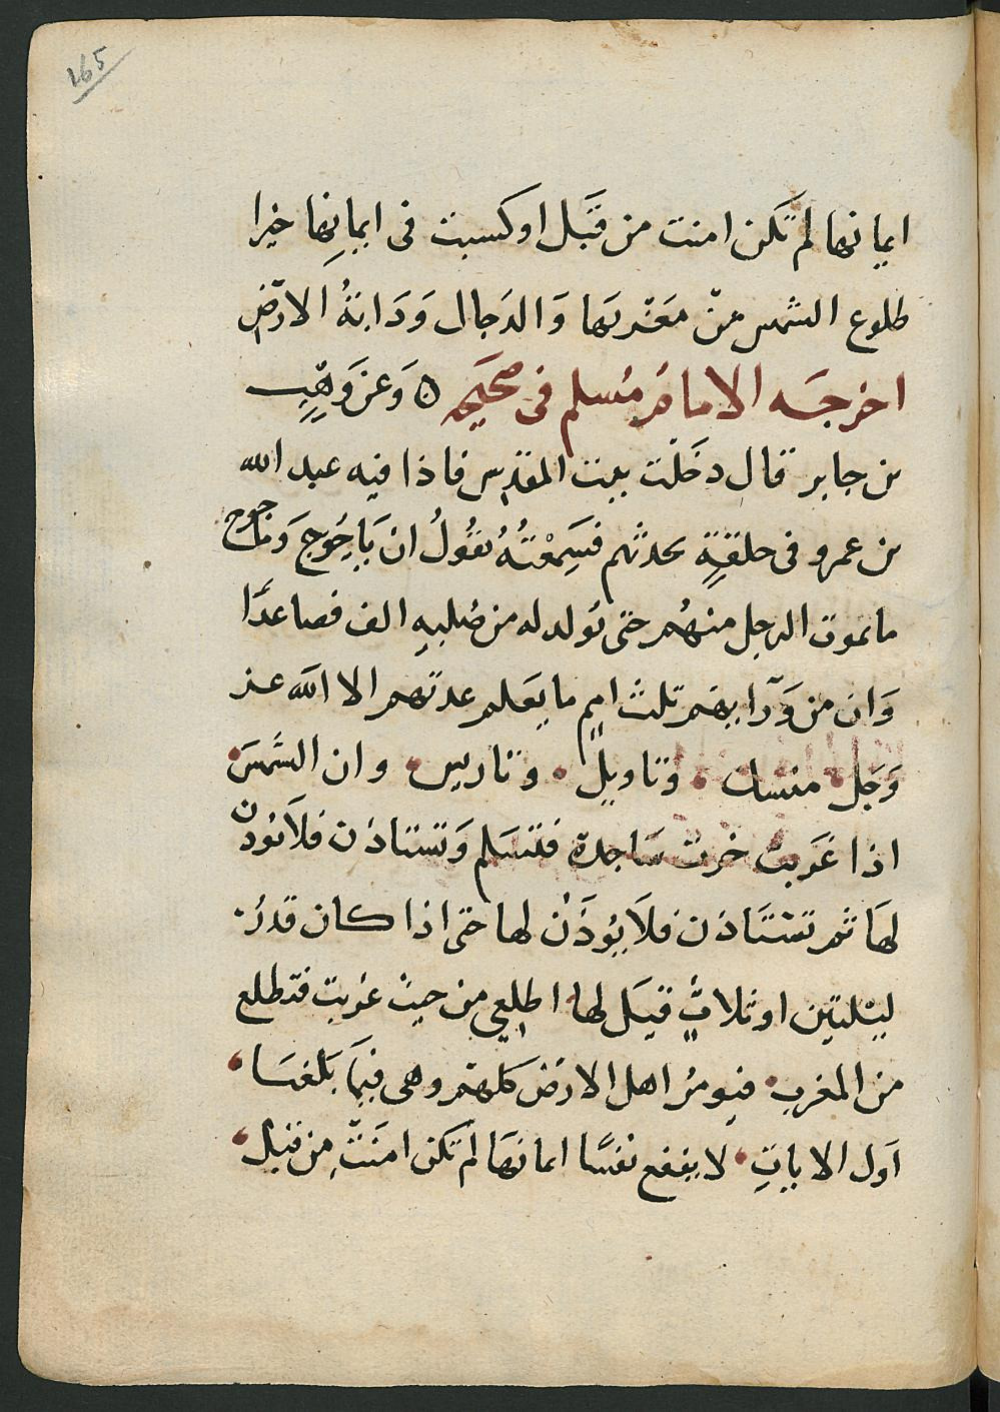 165
ايمانها لم تكن امنت من قَبل او كسبت فى ايمانِها خيرا
طلوع الشمس منْ مَغْربَها وَالدَجال وَدَابَةُ الارْض
اخرجَه الامامُ مُسلم فى صَحَيِحه ٥ وَعَن وَهْبٍ
بن جابر قال دخَلْت بيت المقدس فاذا فيه عبد الله
بن عمرو فى حلقةٍ يحدثهم فسَمِعْتُهُ يقُولُ ان يَاجُوجَ وَمَاجوج
ما يموت الرجل منهُم حتى يُولد له من صُلبِهِ الف فصاعدًا
وَان من وَرَايهم ثلث اممٍ ما يَعَلم عدتهم الا الله عز
وَجَل منسك وتاويل وتاريس وان الشمسَ
اذا غَربت خرت سَاجدة فتسَلم وَتستاذن فلاَ يوذن
لهَا ثم تسْتَاذن فلاَ يُوذَن لها حتى اذا كان قدرُ
ليْلتين او ثلاثٍ قيَل لها اطلِعي من حيث غربت فتطلع
من المغرب فيومرُ اهل الارض كلهم وهى فيمَا بَلغنَا
اَول الاياتِ لا ينفع نفسًا ايمانهَا لم تكن امَنَتْ من قبل